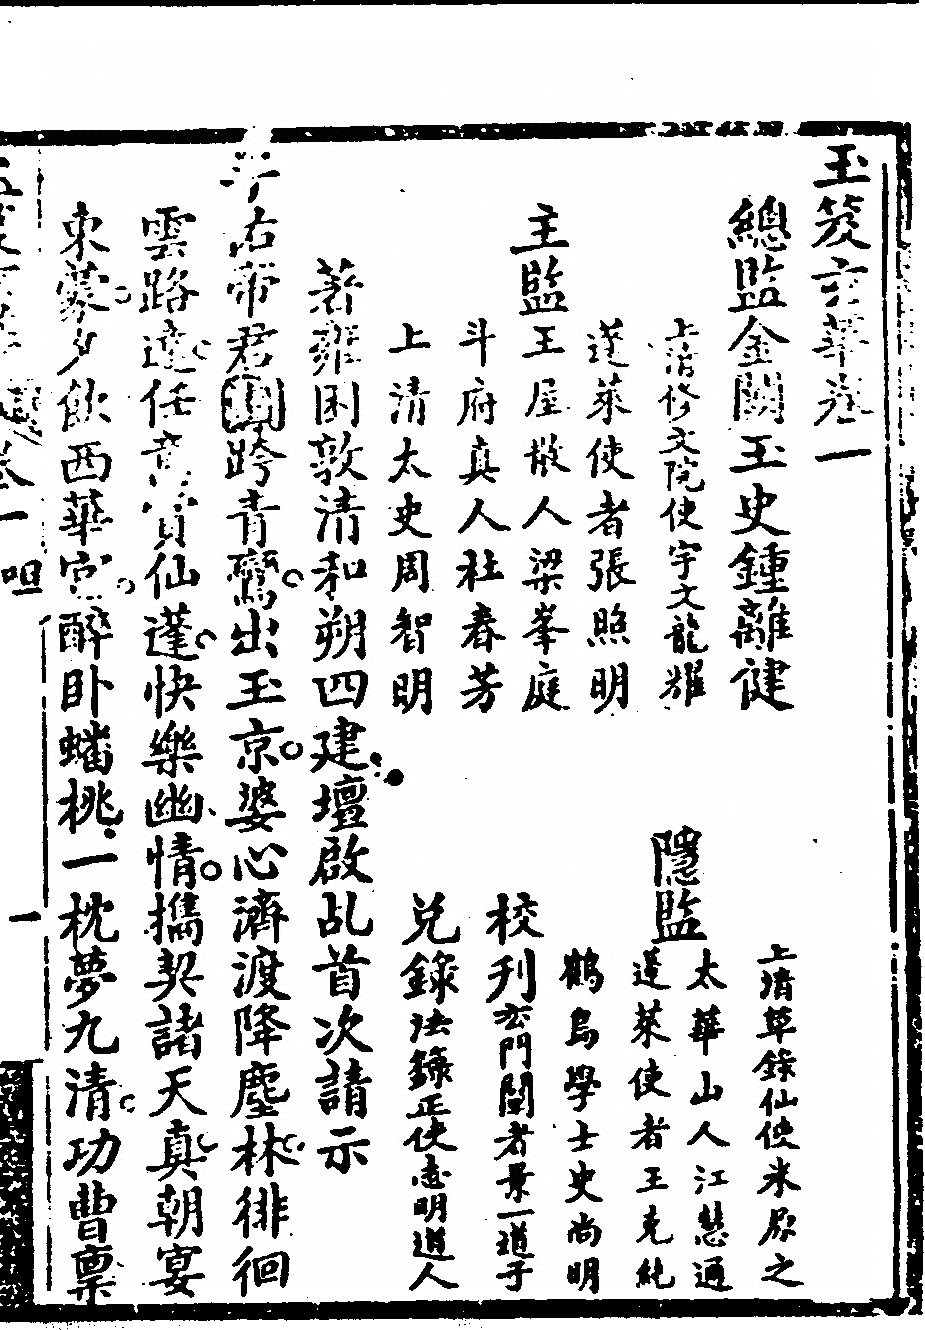 玉笈玄華卷一
總監金闕玉史鍾離健
上清修文院使宇文龍耀
蓬萊使者張照明
主監王屋散人梁峯庭
斗府真人杜春芳
上清太史周智明
上清草錄仙使米原之
隱監太華山人江慧通
蓬萊使者王克純
鶴鳥學士史尚明
校刋玄門闡者景一道子
兌錄法籙正使志明道人
著雍困敦清和朔四建壇啟乩首次請示
斗右帝君跨青鸞出玉京婆心濟渡降塵林徘徊
雲路遠任仙蓬快樂幽情攜契諸天真朝宴
東蒙夕飲西華宮醉卧蟠桃一枕夢九清功曹稟